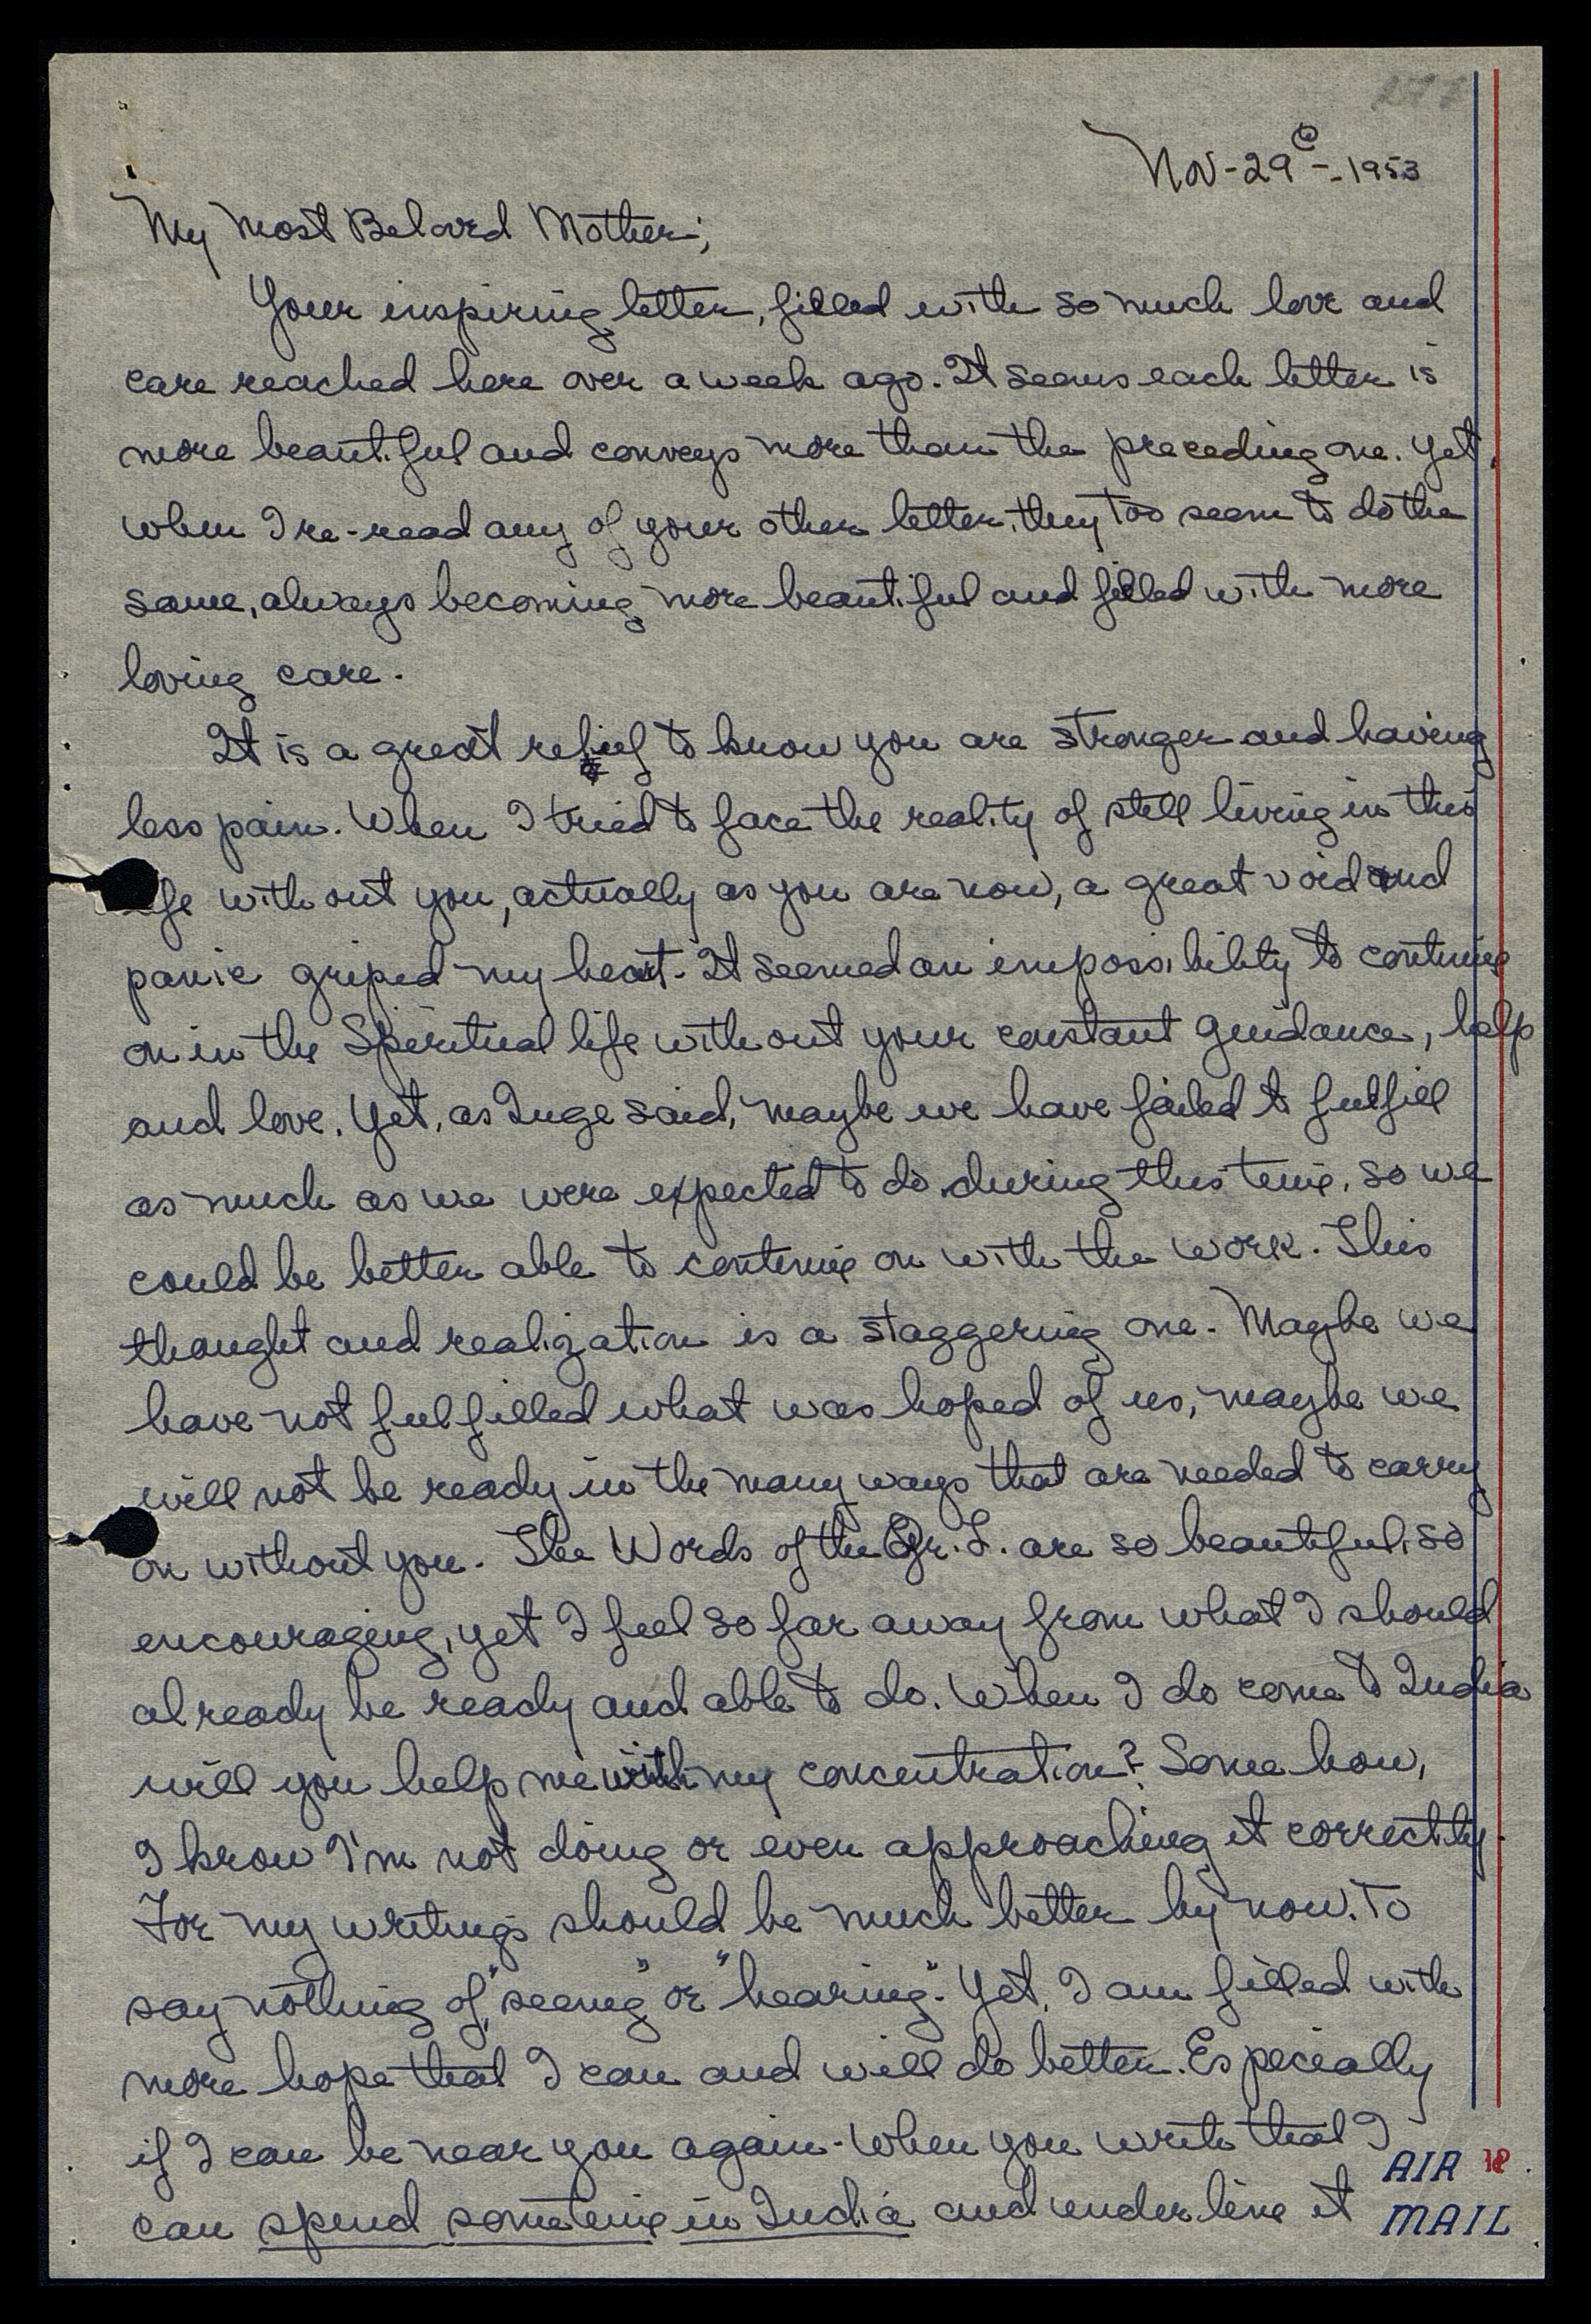 Nov-29-1953
My most Beloved Mother;
Your inspiring letter, filled with so much love and
care reached here over a week ago. It seems each letter is
more beautiful and conveys more than the preceding one. Yet,
when I re-read any of your other letter, they too seem to do the
same, always becoming more beautiful and filled with more
loving care.
It is a great relief to know you are stronger and having
less pain. When I tried to face the reality of still living in this
life without you, actually as you are now, a great void and
panic griped my heart. It seemed an impossibility to continue
on in the Spiritual life without your constant guidance, help
and love. Yet, as Inge said, maybe we have failed to fulfill
as much as we were expected to do during this time, so we
could be better able to continue on with the work. This
thought and realization is a staggering one. Maybe we
have not fulfilled what was hoped of us, maybe we
will not be ready in the many ways that are needed to carry
on without you. The Words of the Gr. L. are so beautiful, so
encouraging, yet I feel so far away from what I should
already be ready and able to do. When I do come to India
will you help me with my concentration? Some how,
I know I'm not doing or even approaching it correctly.
For my writings should be much better by now. To
say nothing of, "seeing" or "hearing". Yet, I am filled with
more hope that I can and will do better. Especially
if I can be near you again. When you write that I
can spend sometime in India and underline it
AIR
MAIL